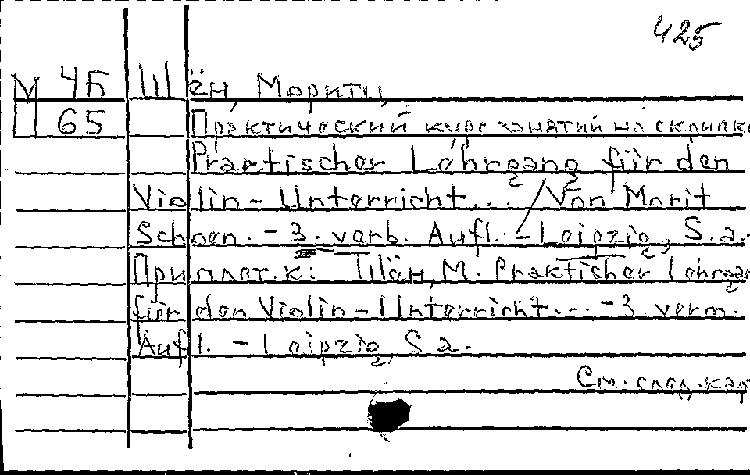 425
М 4Б Шён, Моритц,
П 65 Практический курс занятий на скрипке
Praktischer Lehrgang für den
Violin-Unterricht... / Von Morit
Schoen. - 3. verb. Aufl. - Leipzig, S.a.
Приплет. к: Шён, M. Praktischer Lehrgan
für den Violin-Unterricht... - 3. verm.
Aufl. - Leipzig, S.a.
См. след. кар